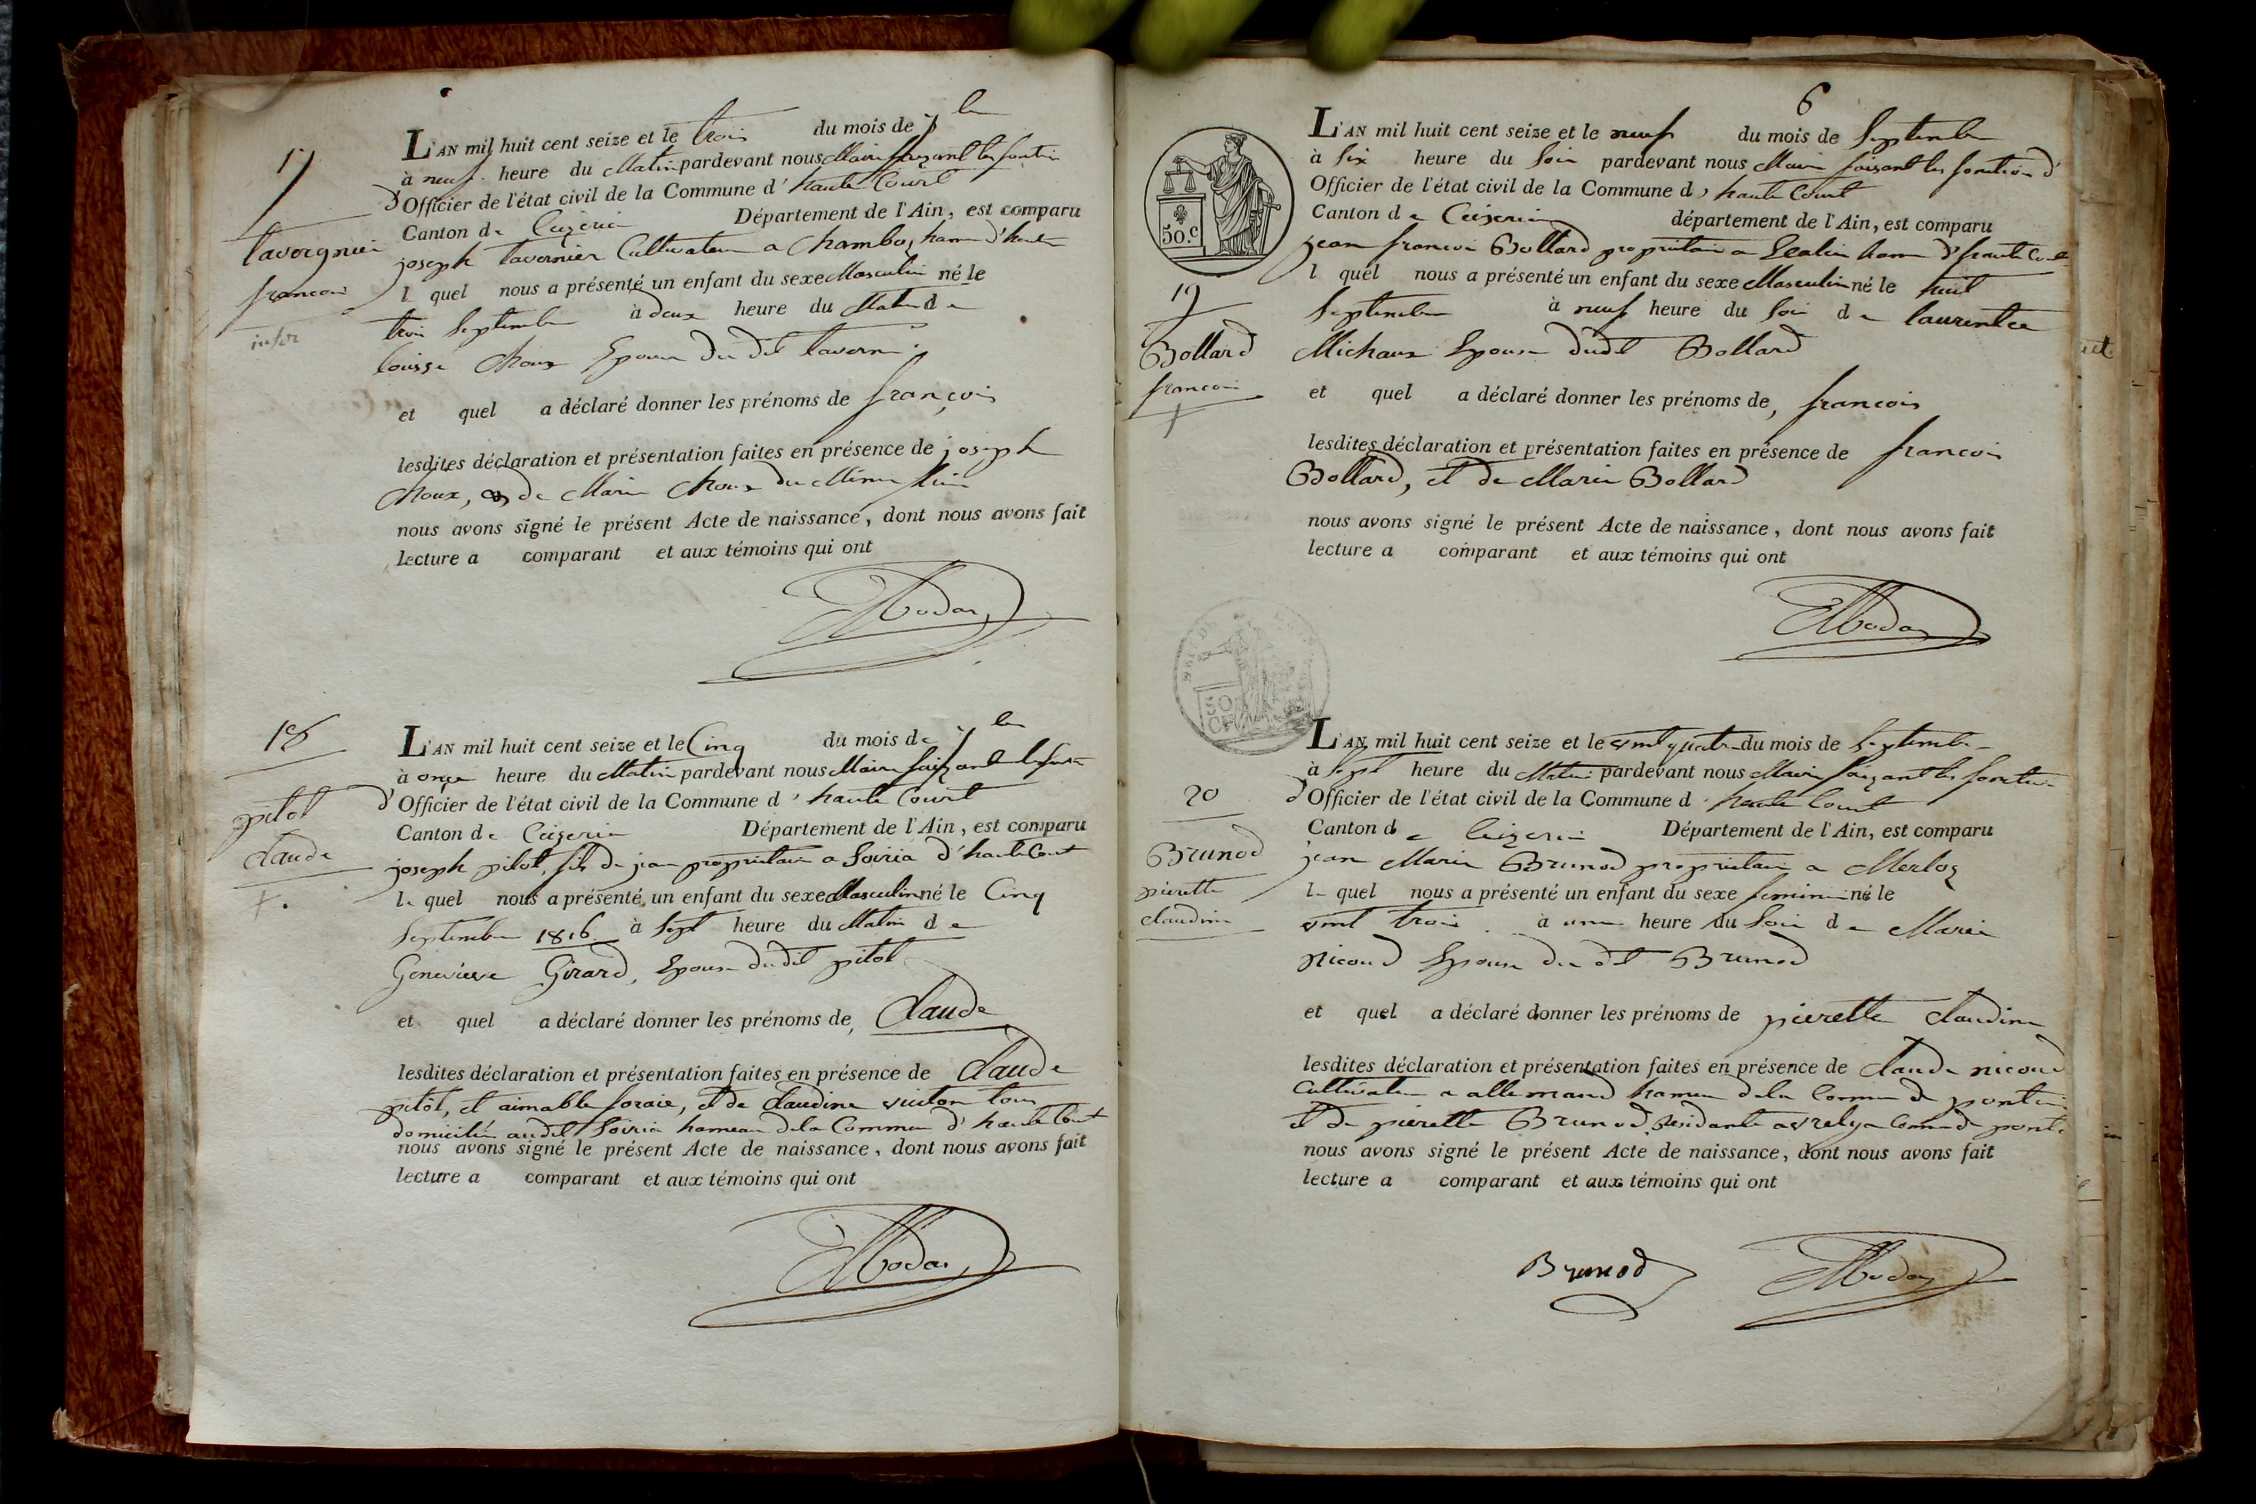 17
tavergnier
francoi
L'AN mil huit cent seize et le trois du mois de 7bre
à neuf heure du Matin pardevant nous Maire faisant les fontion
d'Officier de l'état civil de la Commune d'haute Court
Canton de Ceizeria Département de l'Ain, est comparu
joseph tavernier Cultivateur a Chambos ham d'haute
l quel nous a présenté un enfant du sexe Masculin né le
trois Septembre à deux heure du Matin de
Louisse Choux Epouse du dit tavernier
et quel a déclaré donner les prénoms de françois
lesdites déclaration et présentation faites en présence de joseph
Choux, de Marie Choux du Même lieu
nous avons signé le présent Acte de naissance, dont nous avons fait
lecture a comparant et aux témoins qui ont
18
pitot
claude
L'AN mil huit cent seize et le Cinq du mois de 7bre
à onze heure du Matin pardevant nous Maire faisant
d'Officier de l'état civil de la Commune d'haute Court
Canton de Ceizeria Département de l'Ain, est comparu
joseph pitot, fils de jean proprietaire a Soiria d'haute Court
le quel nous a présenté un enfant du sexe Masculin né le Cinq
Septembre 1816 à Sept heure du Matin de
Genevieve Girard, Epouse du dit pitot
et quel a déclaré donner les prénoms de, Claude
lesdites déclaration et présentation faites en présence de Claude
pitot, et aimable foraie, et de Claudine vuiton tous
domiciliés audit Soiria hameau dela Commune d'haute Court
nous avons signé le présent Acte de naissance, dont nous avons fait
lecture a comparant et aux témoins qui ont
6
50.c
19
Bollard
francoi
L'AN mil huit cent seize et le neuf du mois de Septembre
à Six heure du Soir pardevant nous Maire faisant les fonction d'
Officier de l'état civil de la Commune d'haute Court
Canton de Ceizeria département de l'Ain, est comparu
jean francoi Bollard proprietaire a ham d'haute Court
l quel nous a présenté un enfant du sexe Masculin né le huit
Septembre à neuf heure du Soir de Laurentce
Michaux Epouse dudit Bollard
et quel a déclaré donner les prénoms de, francois
lesdites déclaration et présentation faites en présence de francois
Bollard, et de Marie Bollard
nous avons signé le présent Acte de naissance, dont nous avons fait
lecture a comparant et aux témoins qui ont
20
Brunod
pierette
claudine
L'AN mil huit cent seize et le vint quatre du mois de Septembre
à Sept heure du Matin pardevant nous Maire faisant les fonction
d'Officier de l'état civil de la Commune d'haute Court
Canton de Ceizeria Département de l'Ain, est comparu
jean Marie Brunod proprietaire a Merloz
le quel nous a présenté un enfant du sexe feminin né le
vint trois à une heure du Soir de Marie
Nicoud Epouse du dit Brunod
et quel a déclaré donner les prénoms de pierette Claudine
lesdites déclaration et présentation faites en présence de Claude nicoud
Cultivateur a allemand hameau dela Commune de
et de pierette Brunod, Residante a Commune de
nous avons signé le présent Acte de naissance, dont nous avons fait
lecture a comparant et aux témoins qui ont
Brunod